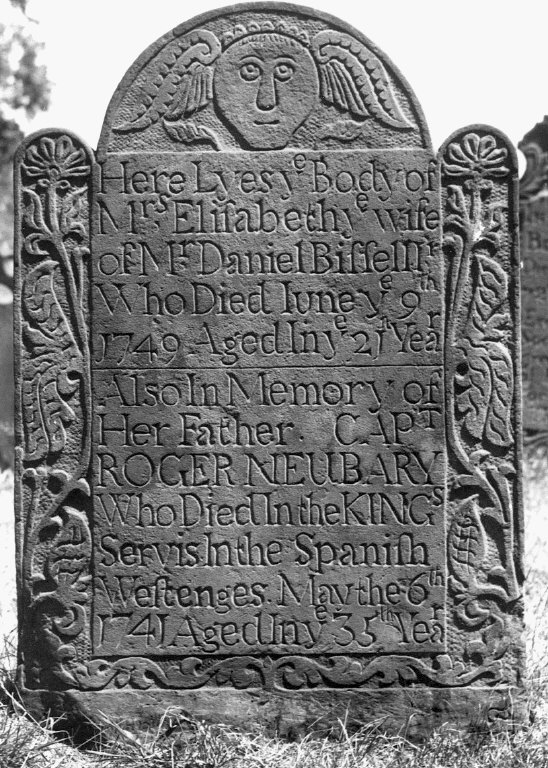 Here Lyes yᵉ Body of
Mʳˢ Eliſabeth yᵉ wife
of Mʳ Daniel Biſſell Iʳ
Who Died Iune yᵉ 9ᵗʰ
1749 Aged In yᵉ 21ᵗʰ Yeaʳ
Also In Memory of
Her Father. CAPᵀ
ROGER NEUBARY
Who Died In the KINGˢ
Servis In the Spaniſh
Weſtenges. May the 6ᵗʰ
1741 Aged In yᵉ 35ᵗʰ Yeaʳ